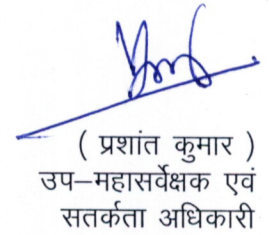 ( प्रशांत कुमार )
उप–महासर्वेक्षक एवं
सतर्कता अधिकारी